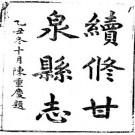 續修甘
泉縣志
乙丑冬十月陳重慶題